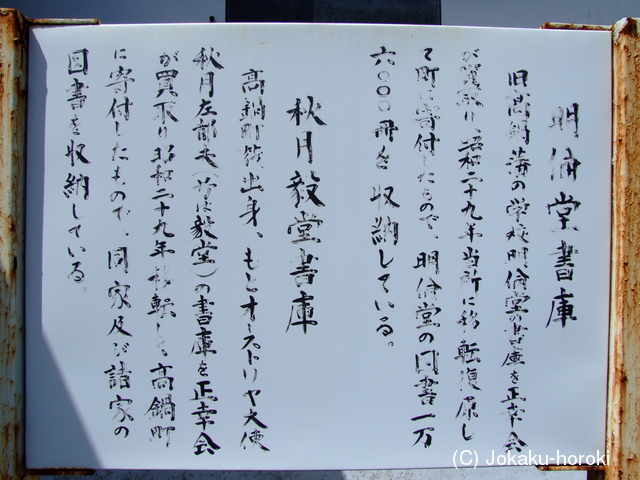 明倫堂書庫
旧高鍋藩の学校明倫堂の書庫を正幸会
が買取り、昭和二十九年当所に移転復原し
て町に寄付したもので、明倫堂の図書一万
六〇〇〇冊を収納している。
秋月毅堂書庫
高鍋町 出身、もとオーストリヤ大使
秋月左都夫(号は毅堂)の書庫を正幸会
が買取り昭和二十九年移転して高鍋町
に寄付したもので、同家及び諸家の
図書を収納している。
(C) Jokaku-horoki